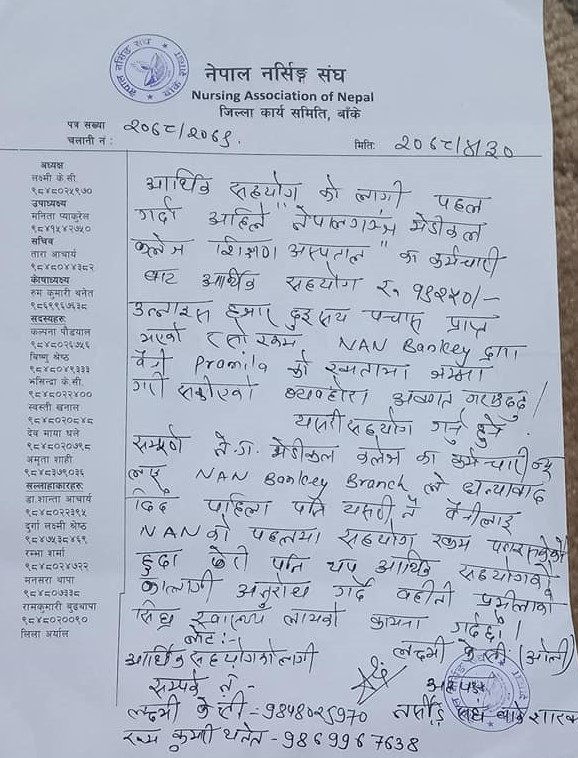 नेपाल नर्सिङ्ग संघ
Nursing Association of Nepal
जिल्ला कार्य समिति, बाँके
पत्र सख्या २०६८/२०६९.
चलानी नं :
मिति: २०६८/४/३०
अध्यक्ष
लक्ष्मी के.सी.
९८४८०२५९७०
उपाध्यक्ष
मनिता प्याकुरेल
९८४१५४२७५०
सचिव
तारा आचार्य
९८४८०४४३८२
कोषाध्यक्ष
रुम कुमारी थनेत
९८६९९६७६३८
सदस्यहरुः
कल्पना पौडयाल
९८४८०२६७५६
बिष्णु श्रेष्ठ
९८४८०४९३३३
मसिन्द्रा के.सी.
९८४८०२२४००
स्वस्ती खनाल
९८४८०२०८४८
देव माया घले
९८४८०२०७९८
अमृता शाही
९८४८३७९०३६
सल्लाहाकारहरुः
डा.शान्ता आचार्य
९८४८०२२३९५
दुर्गा लक्ष्मी श्रेष्ठ
९८४७५३८४६९
रम्भा शर्मा
९८४८०२४७२२
मनसरा थापा
९८४८०७३३८
रामकुमारी बुढथापा
९८४८०२००९०
लिला अर्याल
आर्थिक सहयोग को लागी पहल
गर्दा अहिले "नेपालगञ्ज मेडीकल
कलेज शिक्षण अस्पताल" का कर्मचारी
बाट आर्थिक सहयोग रु. १९२५०/-
उन्नाइस हजार दुइ सय पचास प्राप्त
भएको त्सो रकम NAN Bankey द्वारा
बैनी Promila को खातामा जम्मा
गरी सकीएको व्यहोरा अवगत गराउदछु।
यसरी सहयोग गर्नु हुने
सम्पूर्ण ने.गं. मेडीकल कलेज का कर्मचारी
लाइ NAN Bankey Branch ले धन्यवाद
दिदै पहिला पनि यसरी नै बैनीलाई
NAN को पहलमा सहयोग रकम
हुदा फेरी पनि थप आर्थिक सहयोगको
कालागी अनुरोध गर्दै बहीनी प्रमीलाको
सिघ्र स्वास्थ्य लाभको कामना गर्दछौ।
नोट:-
आर्थिक सहयोगकोलागी
सम्पर्क नं -
लक्ष्मी के सी - 9848025970
रुम कुमारी थनेत - 9869967638
लक्ष्मी के सी (ओली)
अध्यक्ष
नर्सीङ्ग संघ बाके शाखा